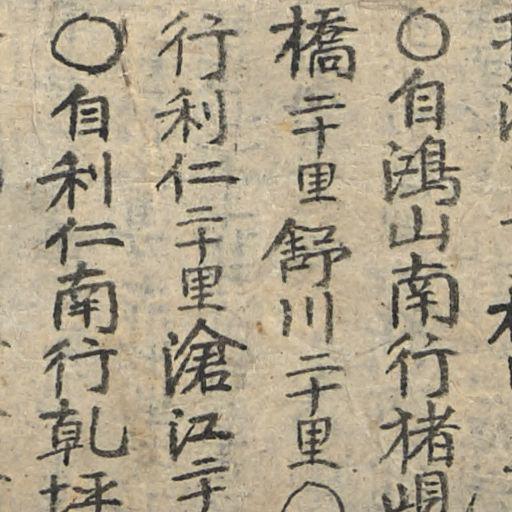 ○自鴻山南行猪峴
橋二十里舒川二十里○
行利仁二十里滄江二十
○自利仁南行乾坪